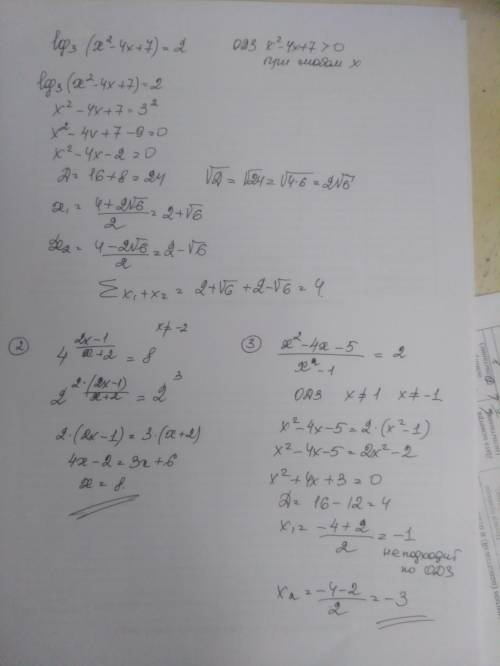 log₃(x²-4x+7)=2 ОДЗ x²-4x+7>0
при любом x
log₃(x²-4x+7)=2
x²-4x+7=3²
x²-4x+7-9=0
x²-4x-2=0
D=16+8=24 √D=√24=√4·6=2√6
x₁=(4+2√6)/2=2+√6
x₂=(4-2√6)/2=2-√6
Σx₁+x₂=2+√6+2-√6=4
② x≠-2
4^((2x-1)/(x+2))=8
2^(2·(2x-1)/(x+2))=2³
2·(2x-1)=3·(x+2)
4x-2=3x+6
x=8
③ (x²-4x-5)/(x²-1)=2
ОДЗ x≠1 x≠-1
x²-4x-5=2·(x²-1)
x²-4x-5=2x²-2
x²+4x+3=0
D=16-12=4
x₁=(-4+2)/2=-1
не подходит
по ОДЗ
x₂=(-4-2)/2=-3